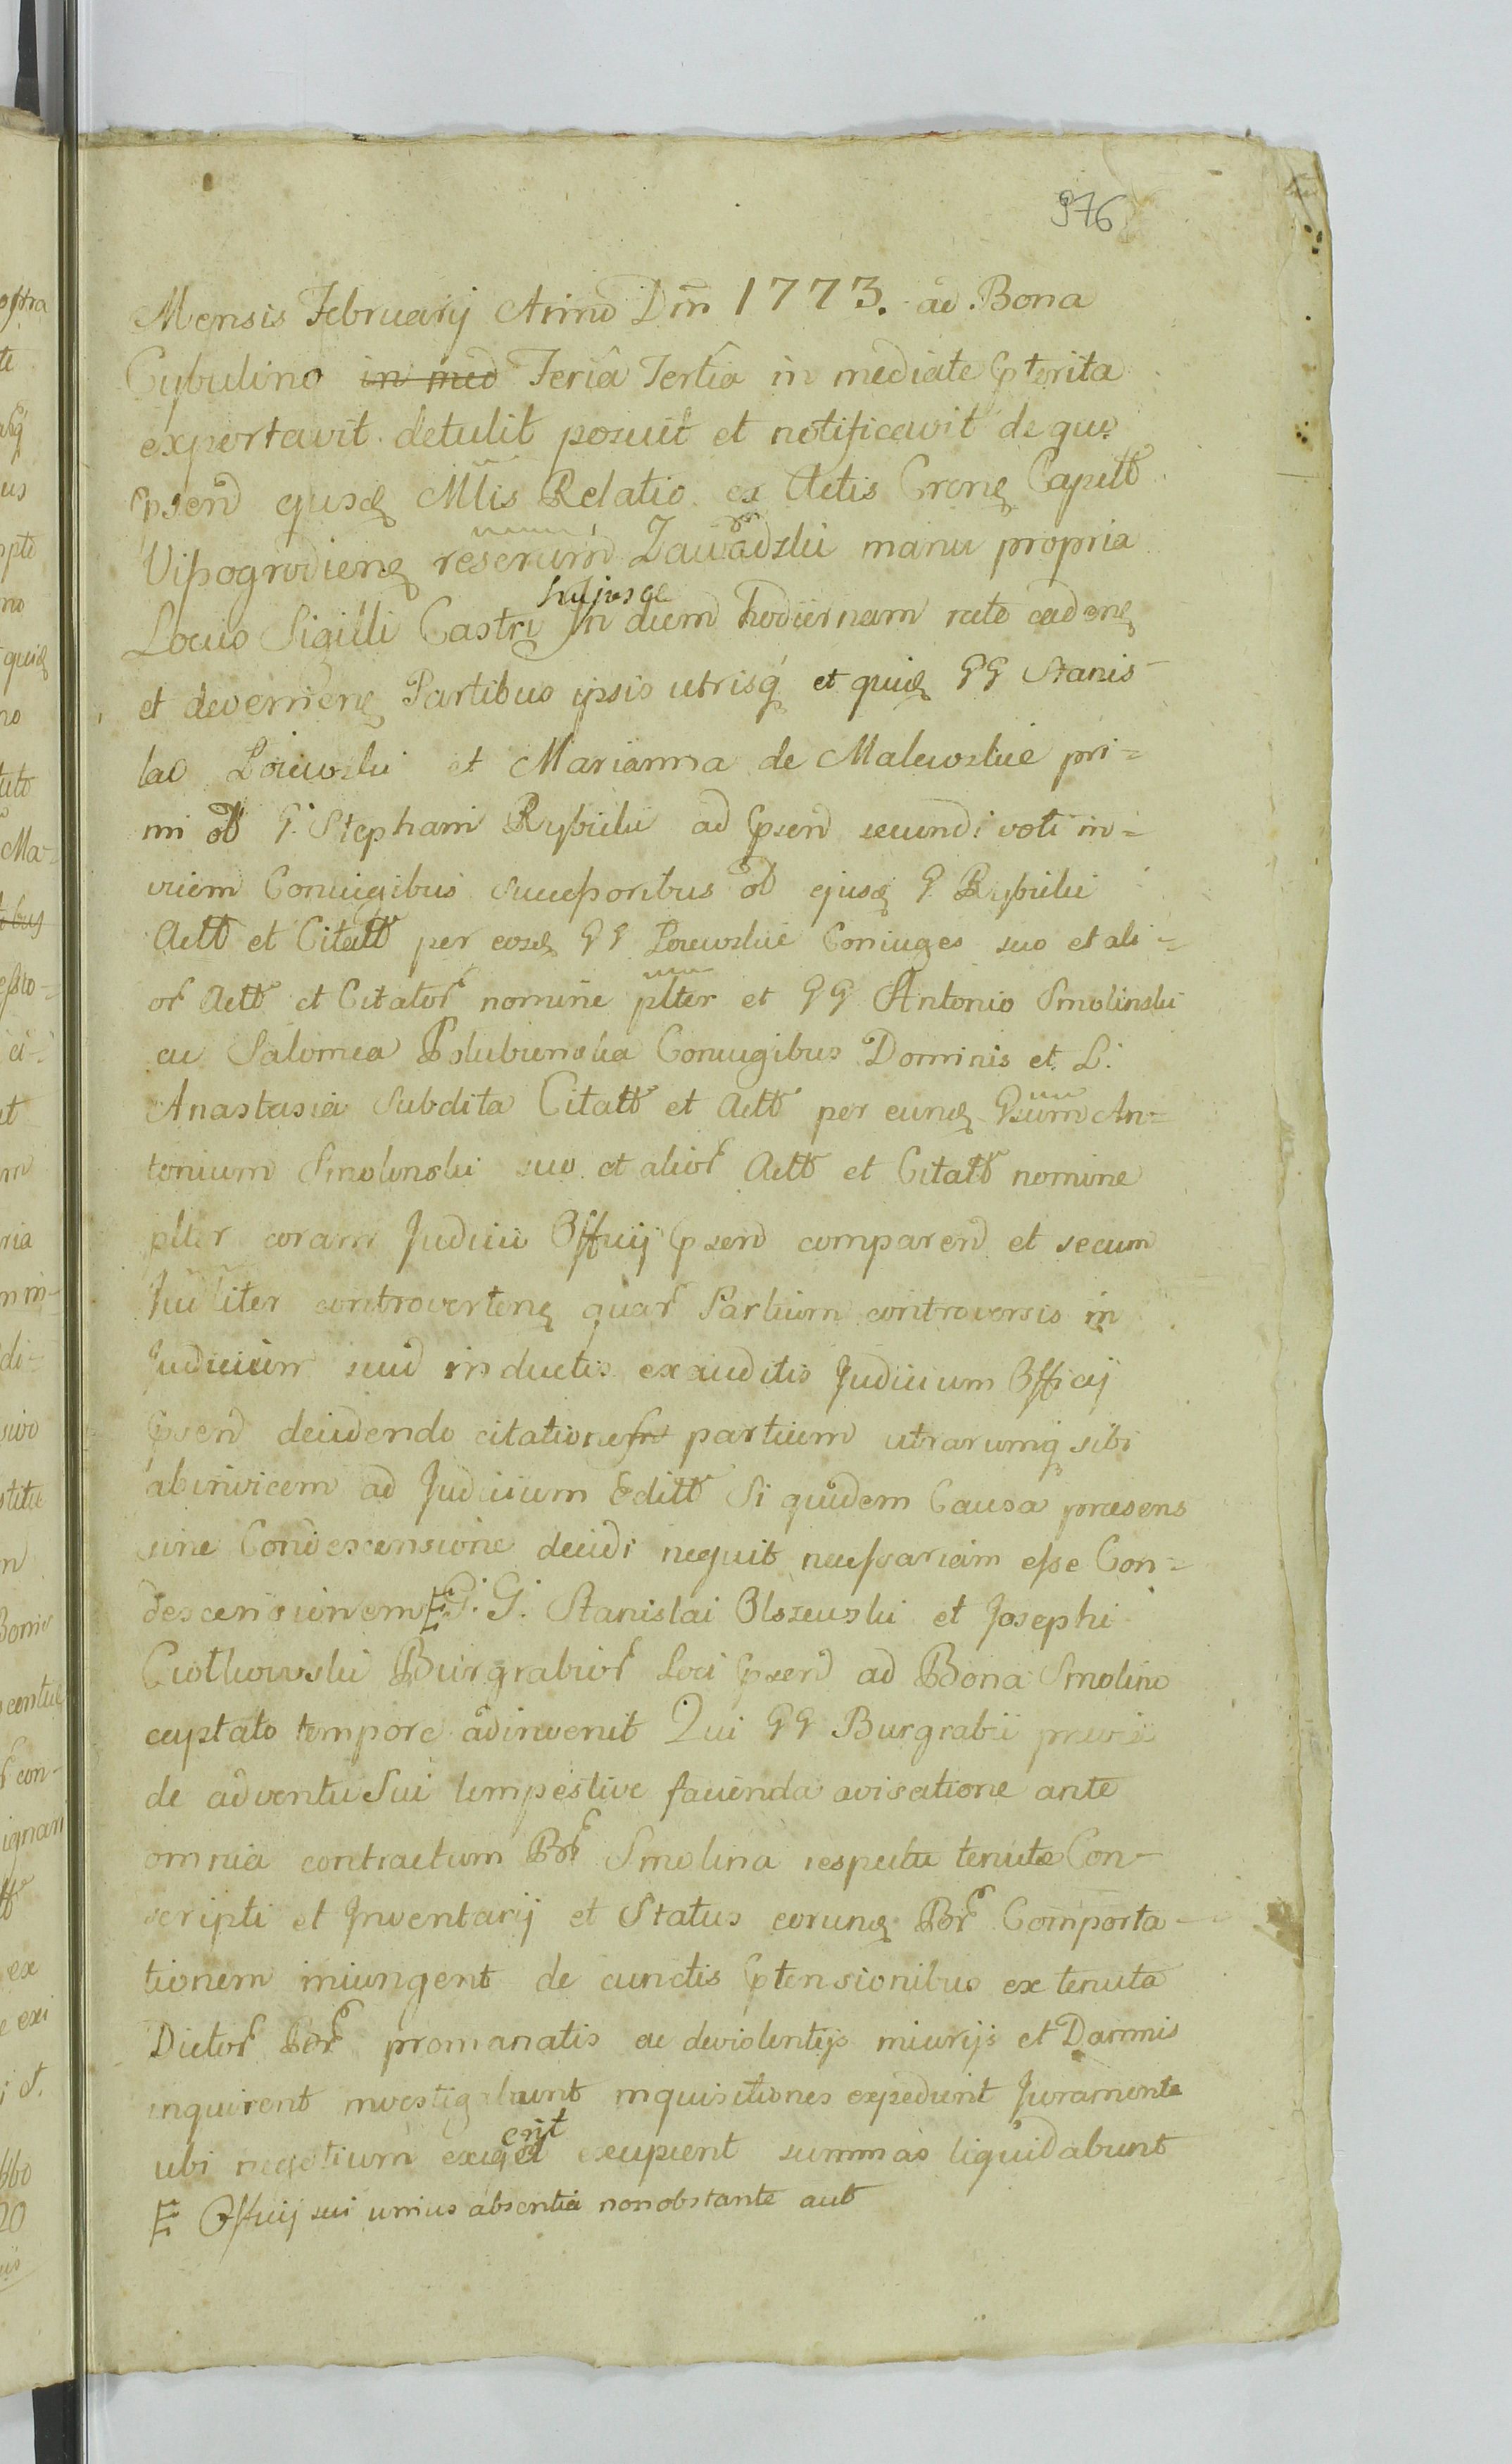 976
Mensis Februarij Anno Dm̃ 1773. ad Bona
Cybulino in med Feria Tertia in mediate ꝑterita
exportavit detulit posuit et notificavit de quo
ꝑsen̄ ejusq Mtis Relatio ex Actis Crenq Capitt
Visogrodienq reserum̄ Zawadzki manu propria
hujusqe
Locus Sigilli Castri In diem hodiernam rite cadenq
et devenienq Partibus ipsis utrisq et quiq GG Stanis-
lao Łoiewski et Marianna de Malewskie pri=
mi ol G. Stephani Rybicki ad ꝑsen̄ secundi voti in=
vicem Coniugibus Successoribus ol ejusq G Rybicki
Actt et Citatt per eosq GG Łoiewskie Coniuges suo et ali=
or Actt et Citator nomine plter et GG Antonio Smolinski
ac Salomea Połubinska Coniugibus Dominis et L.
Anastasia Subdita Citatt et Actt per eunq Gsum An=
tonium Smolinski suo et alior Actt et Citatt nomine
plter coram Judicii Officij ꝑsen̄ comparen̄ et secum
Juliter controvertenq quar Partium controversis in
Judicium suū inductis exauditis Judicium Officij
ꝑsen̄ decidendo citationes partium utrarumq sibi
abinvicem ad Judicium Editt Si quidem Causa præsens
sine Condescensione decidi nequit necessariam esse Con=
descensionem G. G. Stanislai Olszewski et Josephi
Ciotkowski Burgrabior Loci ꝑsen̄ ad Bona Smolino
captato tempore adinvenit Qui GG Burgrabii previa
de adventu Sui tempestive facienda avisatione ante
omnia contractum Bor Smolina respectu tenutæ Con-
scripti et Inventarij et Status eorunq Bor Comporta-
tionem iniungent de cunctis ꝑtensionibus ex tenuta
Dictor Bor promanatis ac de violentijs iniurijs et Damnis
inquirent investigabunt inquisitiones expedient Juramenta
erit
ubi negotium exiget excipient summas liquidabunt
E Officij sui unius absentia non obstante aut